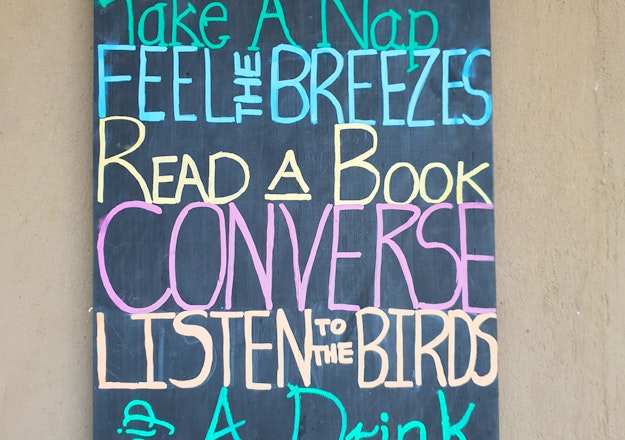 Take A Nap
FEEL THE BREEZES
READ A BOOK
CONVERSE
LISTEN TO THE BIRDS
Sip A Drink